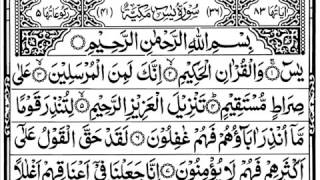 اٰیَاتُهَا ۸۳ (۳۶) سُوْرَةُ یٰسٓ مَكِّیَّةٌ (۴۱) رُكُوْعَاتُهَا ۵
بِسْمِ اللّٰهِ الرَّحْمٰنِ الرَّحِیْمِ
یٰسٓ ۚ وَالْقُرْاٰنِ الْحَكِیْمِ ۙ اِنَّكَ لَمِنَ الْمُرْسَلِیْنَ ۙ عَلٰی
صِرَاطٍ مُّسْتَقِیْمٍ ؕ تَنْزِیْلَ الْعَزِیْزِ الرَّحِیْمِ ۙ لِتُنْذِرَ قَوْمًا
مَّاۤ اُنْذِرَ اٰبَآؤُهُمْ فَهُمْ غٰفِلُوْنَ ۝ لَقَدْ حَقَّ الْقَوْلُ عَلٰۤی
اَكْثَرِهِمْ فَهُمْ لَا یُؤْمِنُوْنَ ۝ اِنَّا جَعَلْنَا فِیْۤ اَعْنَاقِهِمْ اَغْلٰلًا